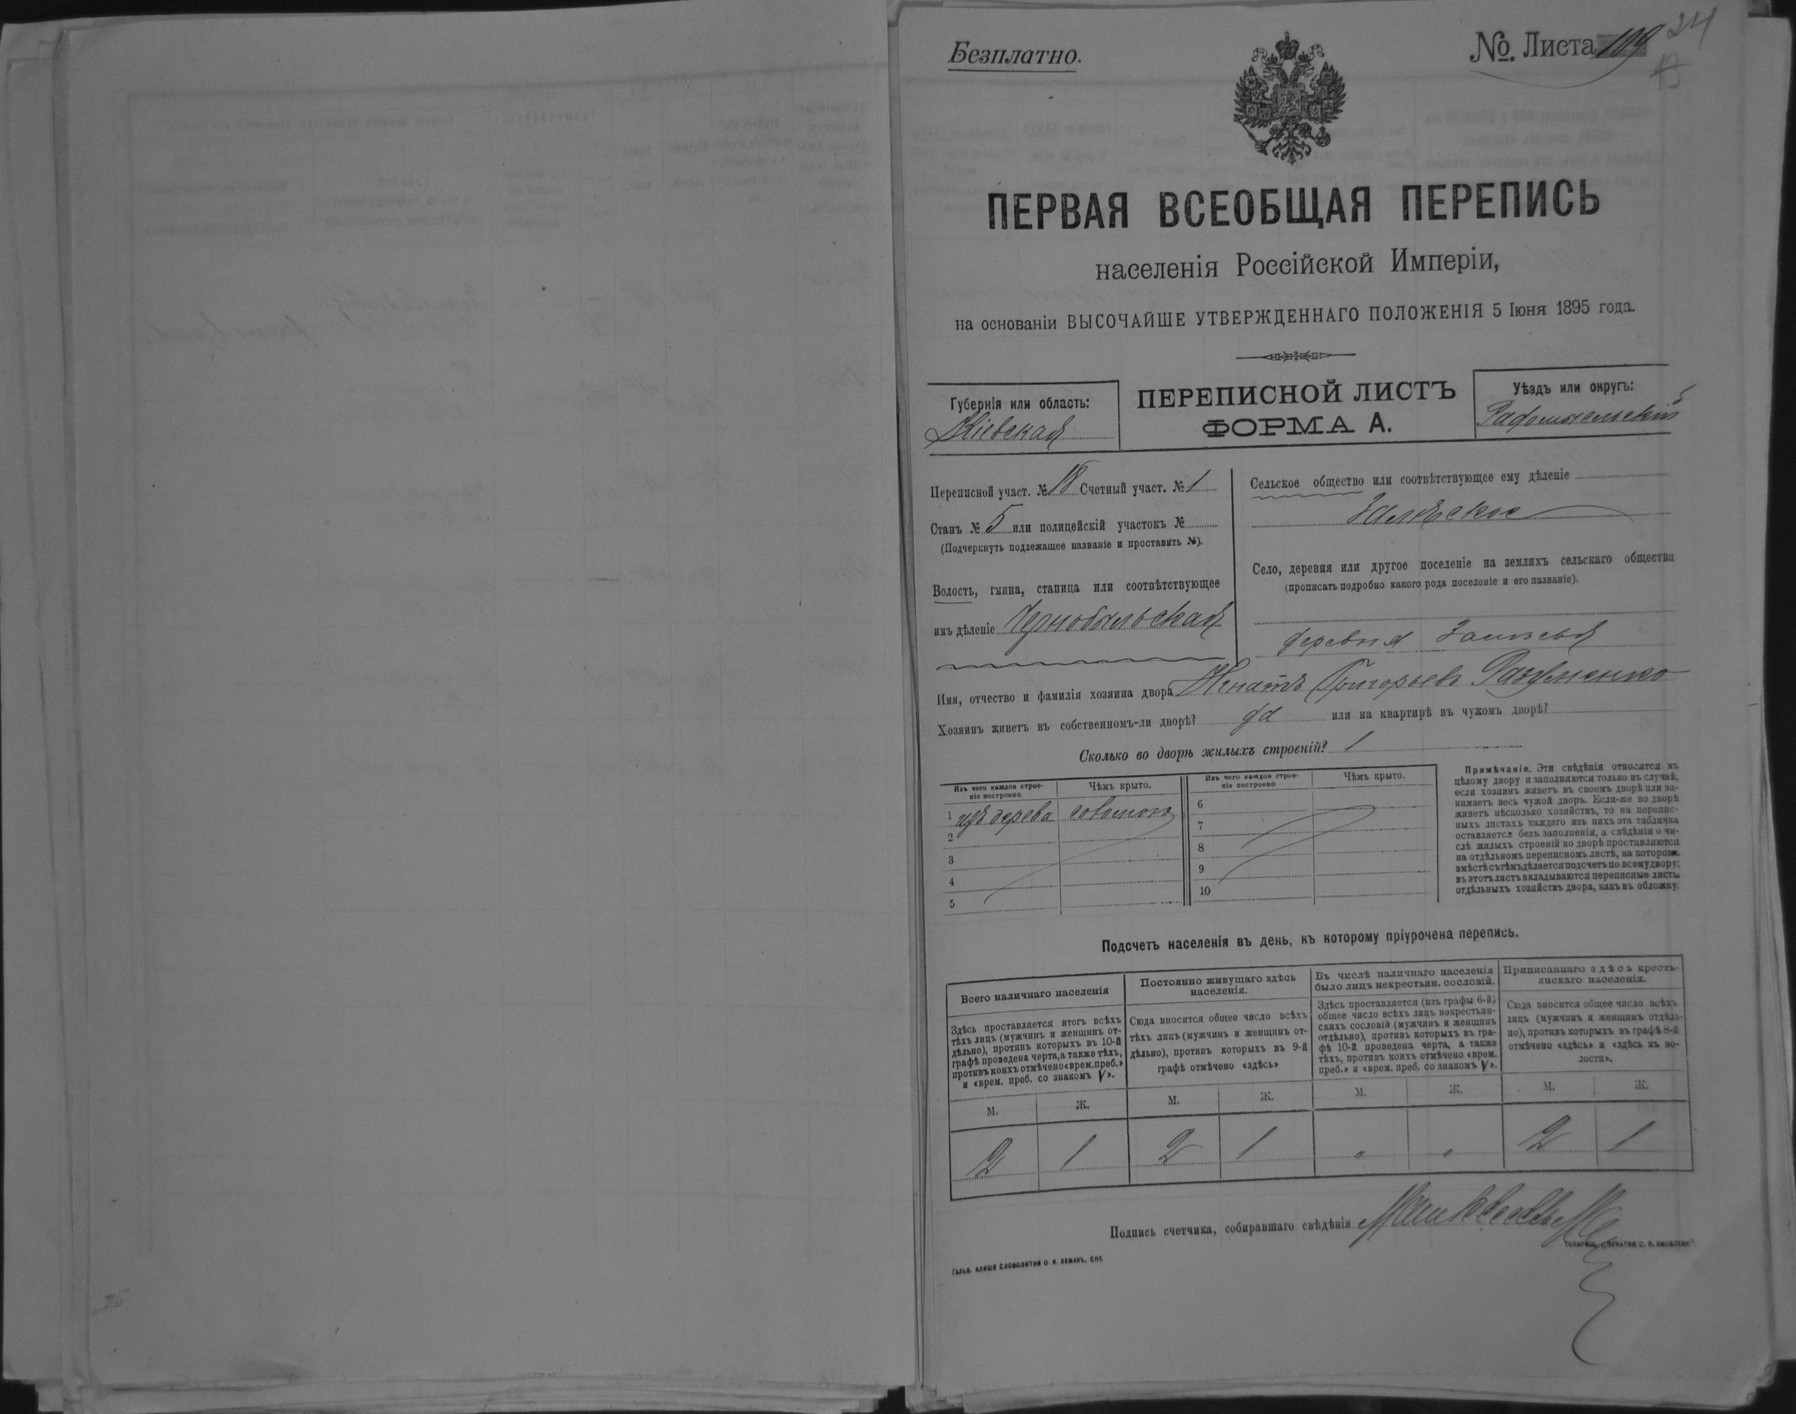 Безплатно.
№. Листа 109
24
ПЕРВАЯ ВСЕОБЩАЯ ПЕРЕПИСЬ
населенія Россійской Имперіи,
на основаніи ВЫСОЧАЙШЕ УТВЕРЖДЕННАГО ПОЛОЖЕНІЯ 5 Іюня 1895 года.
Губернія или область:
Кіевская
ПЕРЕПИСНОЙ ЛИСТЪ
ФОРМА А.
Уѣздъ или округъ:
Радомысльскій
Переписной участ. № 18 Счетный участ. № 1
Станъ № 5 или полицейскій участокъ №
(Подчеркнуть подлежащее названіе и проставить №).
Волость, гмина, станица или соотвѣтствующее
имъ дѣленіе Чернобыльская
Сельское общество или соотвѣтствующее ему дѣленіе
Залѣское
Село, деревня или другое поселеніе на земляхъ сельскаго общества
(прописать подробно какого рода поселеніе и его названіе).
деревня Залѣсье
Имя, отчество и фамилія хозяина двора Игнатъ Григорьевъ
Хозяинъ живетъ въ собственномъ-ли дворѣ? да или на квартирѣ въ чужомъ дворѣ?
Сколько во дворѣ жилыхъ строеній? 1
Изъ чего каждое строе-
ніе построено
Чѣмъ крыто.
Изъ чего каждое строе-
ніе построено
Чѣмъ крыто.
1 изъ дерева соломою
2
3
4
5
6
7
8
9
10
Примѣчаніе. Эти свѣдѣнія относятся къ
цѣлому двору и заполняются только въ случаѣ,
если хозяинъ живетъ въ своемъ дворѣ или за-
нимаетъ весь чужой дворъ. Если-же во дворѣ
живетъ нѣсколько хозяйствъ, то на перепис-
ныхъ листахъ каждаго изъ нихъ эта табличка
оставляется безъ заполненія, а свѣдѣнія о чи-
слѣ жилыхъ строеній во дворѣ проставляются
на отдѣльномъ переписномъ листѣ, на которомъ
вмѣстѣ съ тѣмъ дѣлается подсчетъ по всему двору;
въ этотъ листъ вкладываются переписные листы
отдѣльныхъ хозяйствъ двора, какъ въ обложку.
Подсчетъ населенія въ день, къ которому пріурочена перепись.
Всего наличнаго населенія
Здѣсь проставляется итогъ всѣхъ
тѣхъ лицъ (мужчинъ и женщинъ от-
дѣльно), противъ которыхъ въ 10-й
графѣ проведена черта, а также тѣхъ,
противъ коихъ отмѣчено «врем. преб.»
и «врем. преб. со знакомъ V».
Постоянно живущаго здѣсь
населенія.
Сюда вносится общее число всѣхъ
тѣхъ лицъ (мужчинъ и женщинъ от-
дѣльно), противъ которыхъ въ 9-й
графѣ отмѣчено «здѣсь»
Въ числѣ наличнаго населенія
было лицъ некрестьян. сословій.
Здѣсь проставляется (изъ графы 6-й)
общее число всѣхъ лицъ некрестьян-
скихъ сословій (мужчинъ и женщинъ
отдѣльно), противъ которыхъ въ гра-
фѣ 10-й проведена черта, а также
тѣхъ, противъ коихъ отмѣчено «врем.
преб.» и «врем. преб. со знакомъ V».
Приписаннаго здѣсь кресть-
янскаго населенія.
Сюда вносится общее число всѣхъ
лицъ (мужчинъ и женщинъ отдѣль-
но), противъ которыхъ въ графѣ 8-й
отмѣчено «здѣсь» и «здѣсь къ во-
лости».
М. Ж. М. Ж. М. Ж. М. Ж.
2 1 2 1 " " 2 1
Подпись счетчика, собиравшаго свѣдѣнія
ГАЛЬВ. КЛИШЕ СЛОВОЛИТНИ О. И. ЛЕМАНЪ, СПБ.